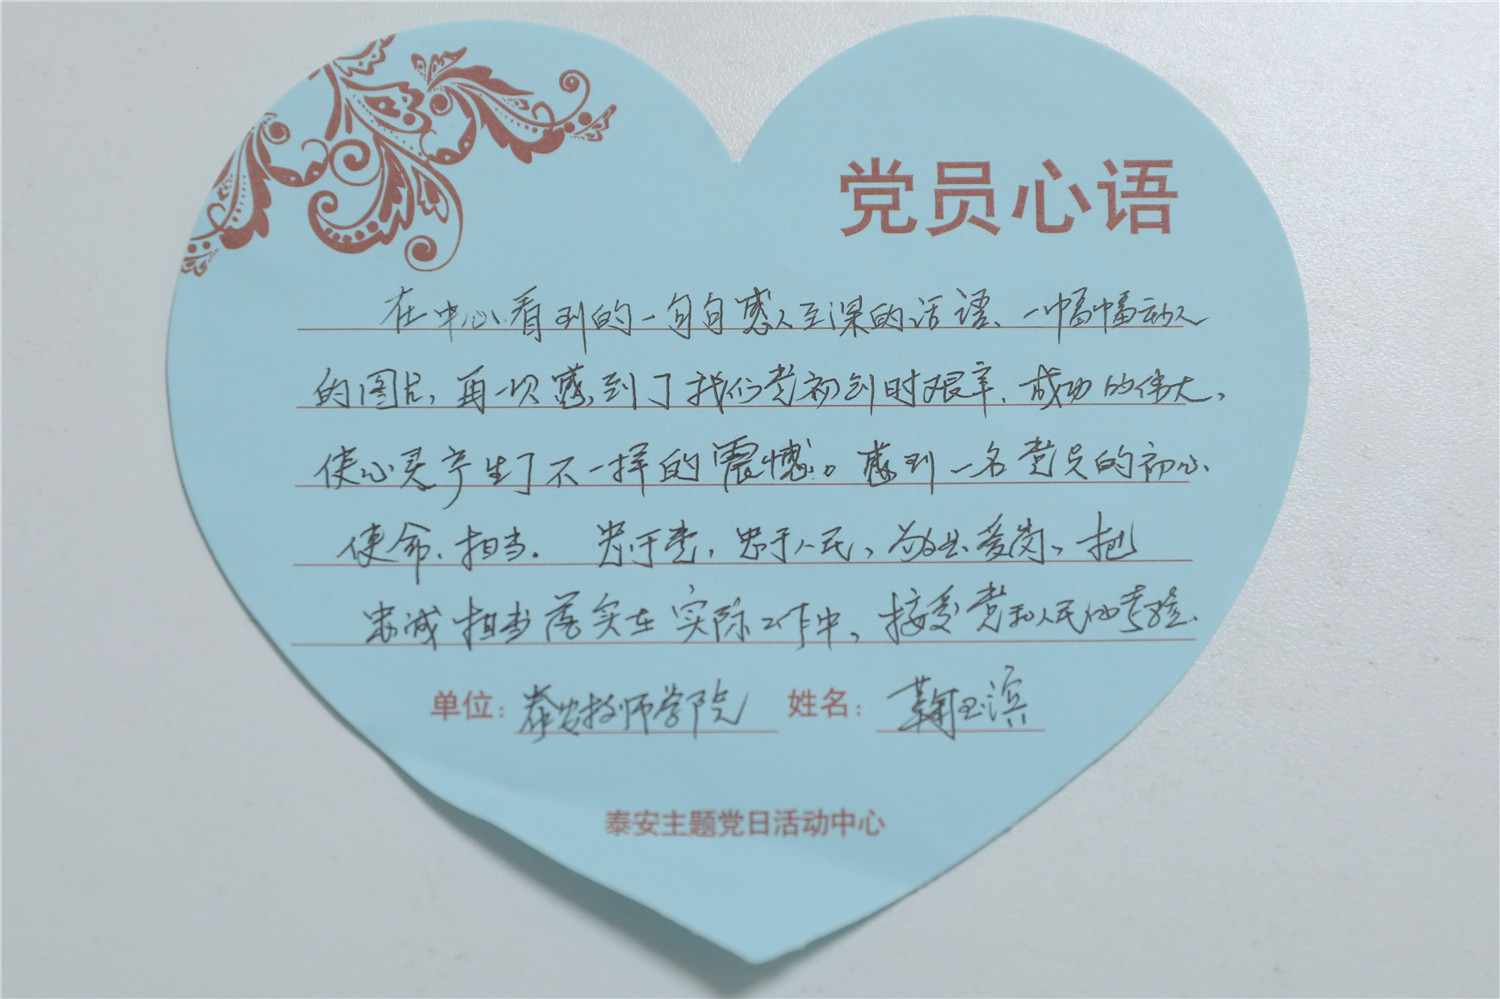 党员心语
在中心看到的一句句感人至深的话语、一幅幅动人
的图片,再一次感到了我们党初创时艰辛,成功的伟大,
使心灵产生了不一样的震憾。感到一名党员的初心
使命、担当。 忠于党,忠于人民,敬业爱岗,把
忠诚担当落实在实际工作中,接受党和人民的考验.
单位: 泰安技师学院 姓名: 鞠玉滨
泰安主题党日活动中心